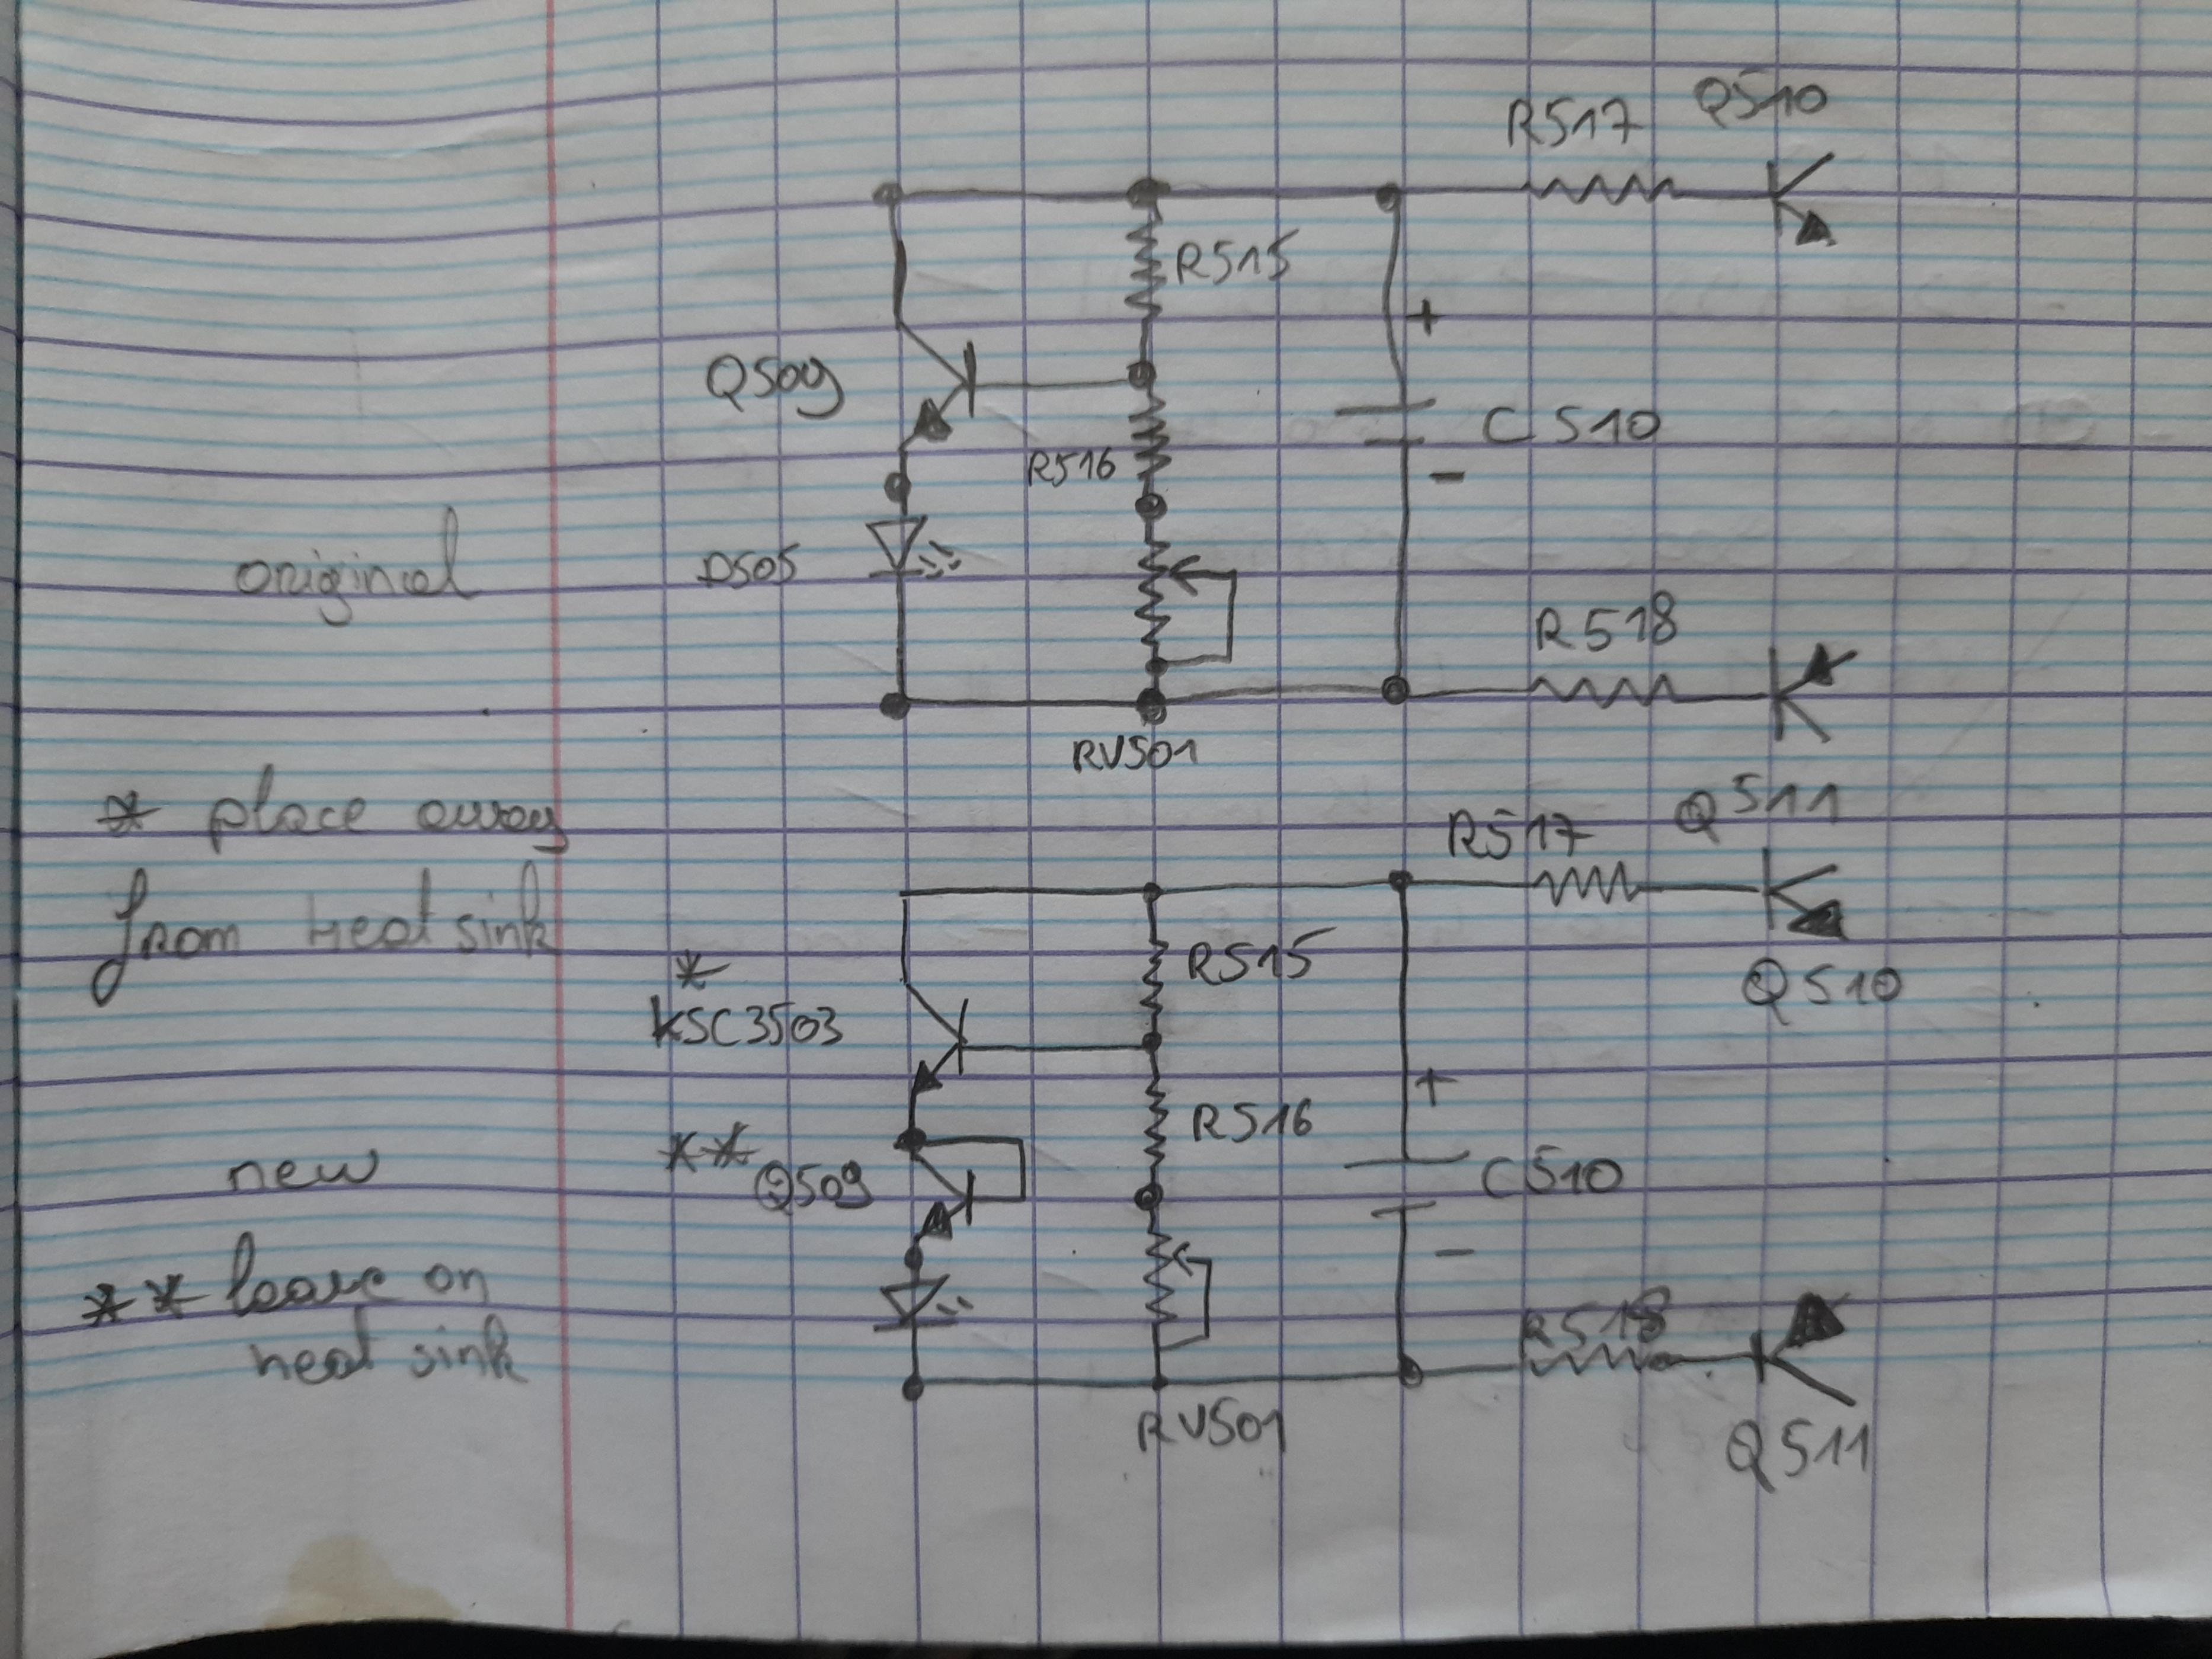 R517 Q510
R515
+
Q509
C510
R516
-
original
D505
R518
RV501
* place away
from heat sink
Q511
R517
R515
Q510
*
KSC3503
+
R516
**
Q509
C510
new
-
** leave on
heat sink
R518
RV501
Q511